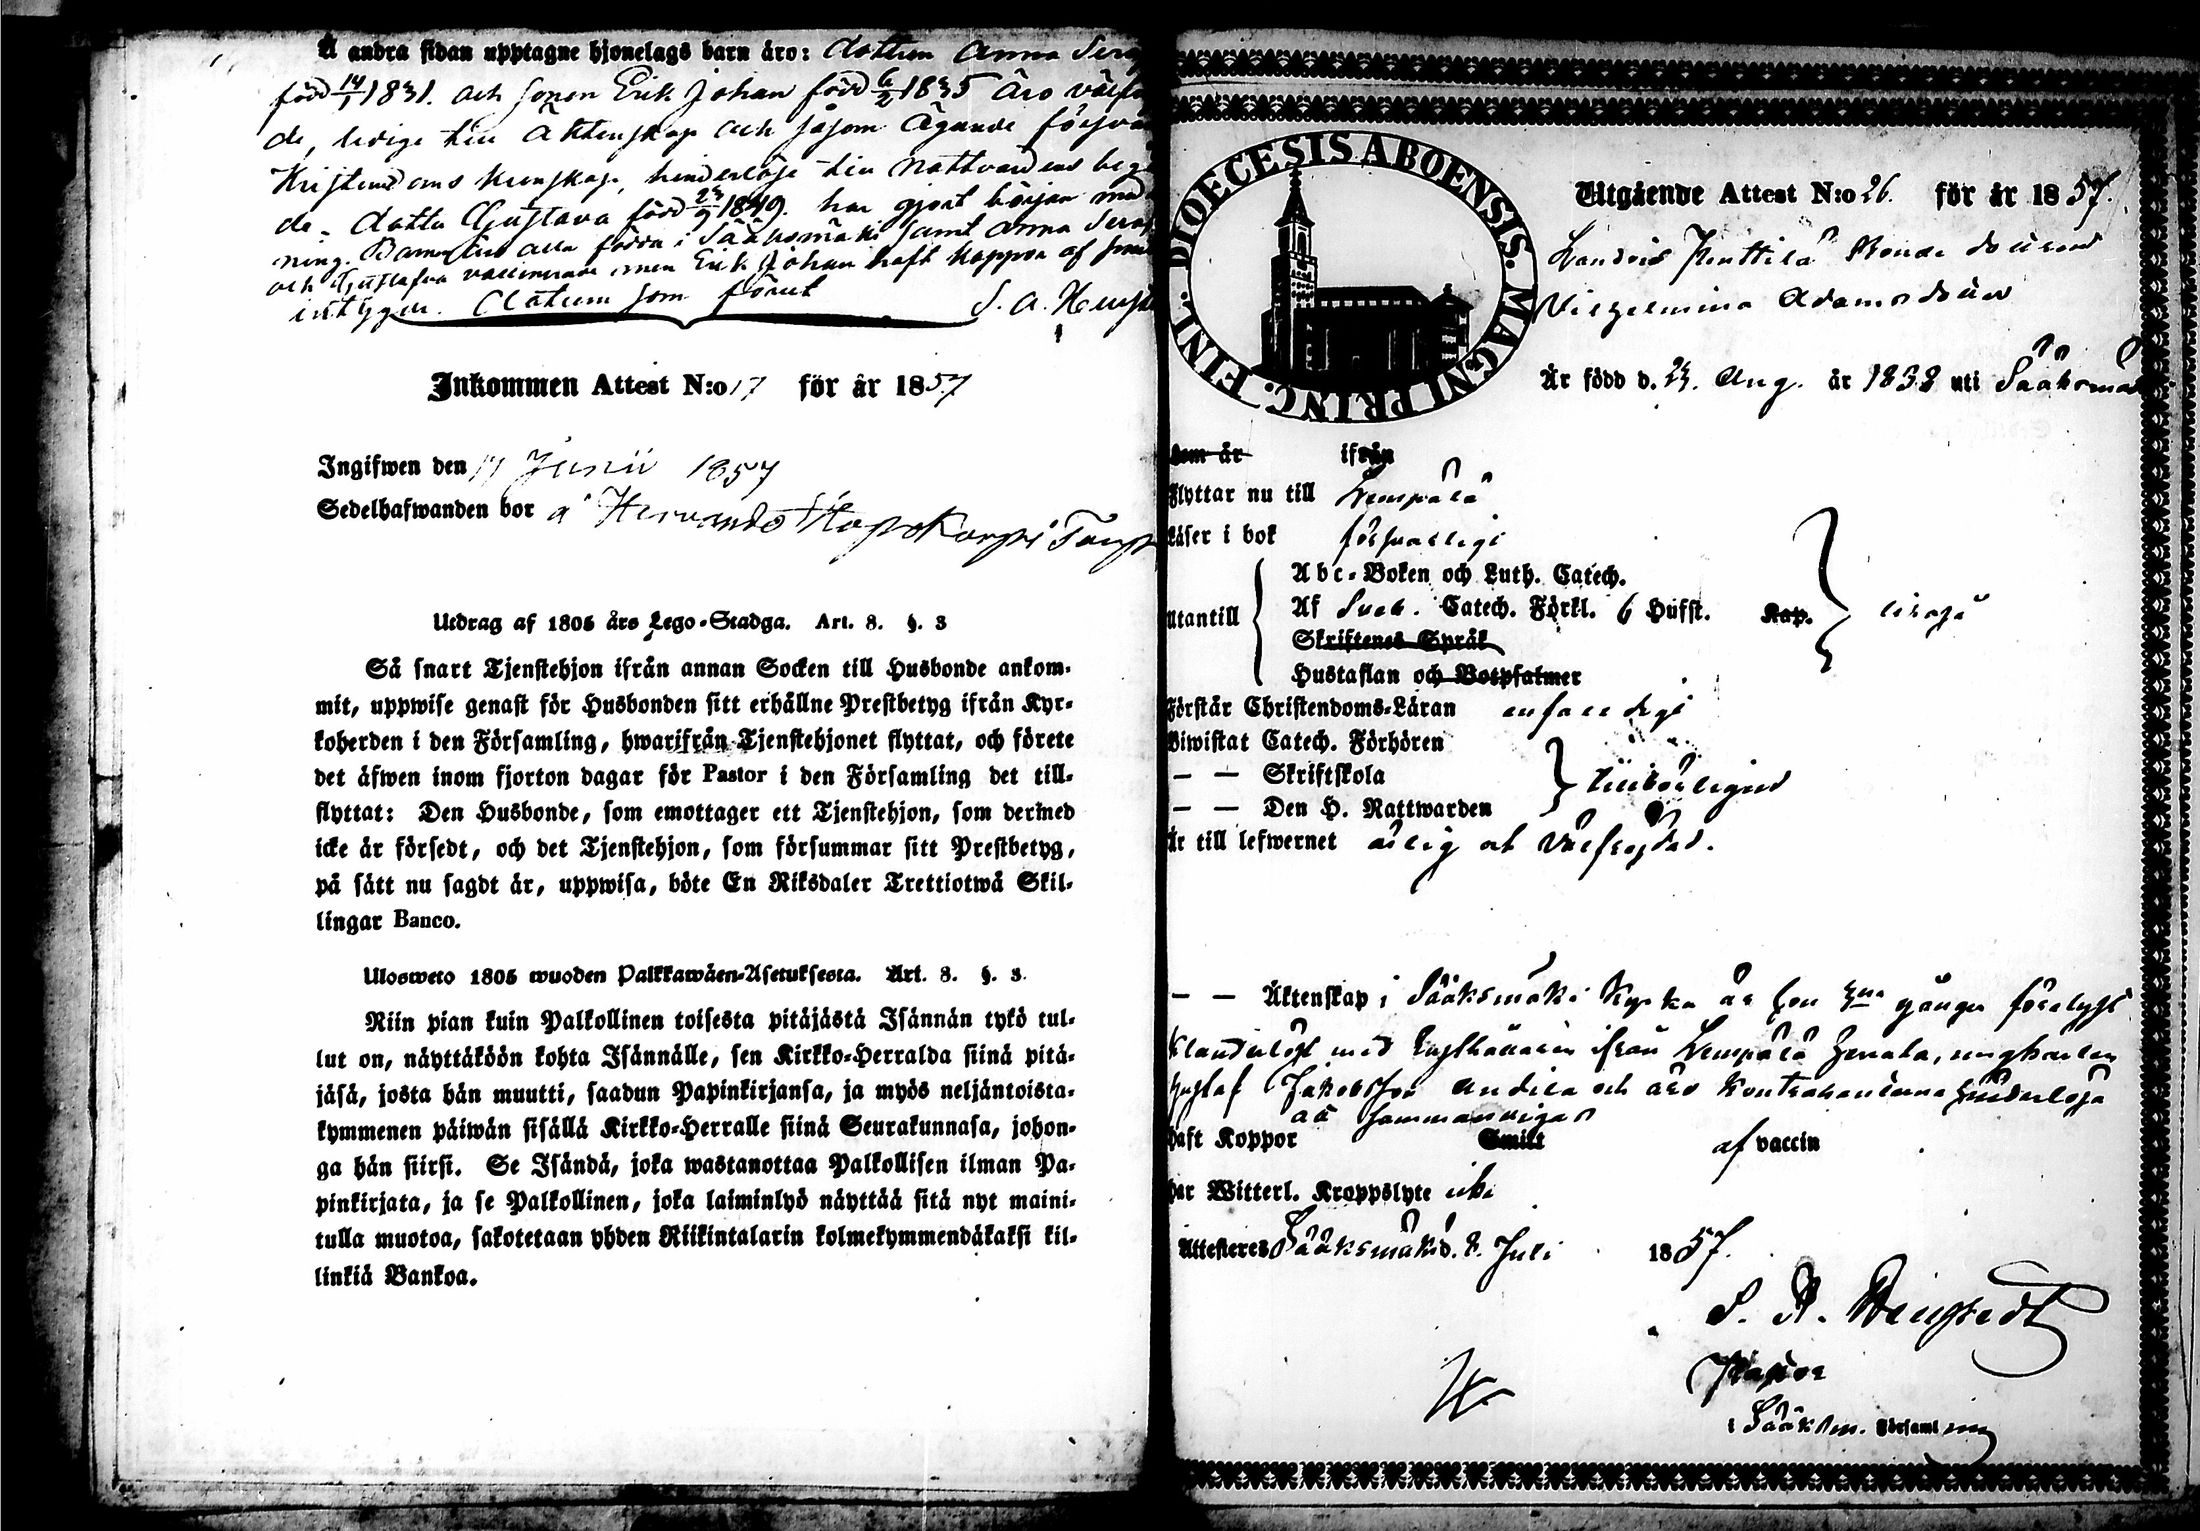 Å andra sidan upptagne hjonelags barn äro: dottren Anna
född 14/1 1831. och sonen Erik Johan född 6/2 1835 äro
de, ledige till Äktenskap och såsom ägande
Kristendoms kunskap, hinderlöse till Nattvardens
de. dotter Gustava född 23/9 1849. har gjort början med
ning. Barnen äro alla födda i Sääksmäki samt Anna
och Gustafva vaccinerade men Erik Johan haft koppor af
intygar. Datum som förut S. A.
Inkommen Attest N:o 17 för år 1857
Ingifwen den 17 Junii 1857
Sedelhafwanden bor å
Utdrag af 1805 års Lego-Stadga. Art. 8. §. 3
Så snart Tjenstehjon ifrån annan Socken till Husbonde ankom-
mit, uppwise genast för Husbonden sitt erhållne Prestbetyg ifrån Kyr-
koherden i den Församling, hwarifrån Tjenstehjonet flyttat, och förete
det äfwen inom fjorton dagar för Pastor i den Församling det till-
flyttat: Den Husbonde, som emottager ett Tjenstehjon, som dermed
icke är försedt, och det Tjenstehjon, som försummar sitt Prestbetyg,
på sätt nu sagdt är, uppwisa, böte En Riksdaler Trettiotwå Skil-
lingar Banco.
Ulosweto 1805 wuoden Palkkawäen-Asetuksesta. Art. 8. §. 3.
Niin pian kuin Palkollinen toisesta pitäjästä Isännän tykö tul-
lut on, näyttäköön kohta Isännälle, sen Kirkko-Herralda siinä pitä-
jäsä, josta hän muutti, saadun Papinkirjansa, ja myös neljäntoista-
kymmenen päiwän sisällä Kirkko-Herralle siinä Seurakunnasa, johon-
ga hän siirsi. Se Isändä, joka wastanottaa Palkollisen ilman Pa-
pinkirjata, ja se Palkollinen, joka laiminlyö näyttää sitä nyt maini-
tulla muotoa, sakotetaan yhden Riikintalarin kolmekymmendäkaksi kil-
linkiä Bankoa.
DIOECESIS ABOENSIS. MAGNI PRINC. FINL.
Utgående Attest N:o 26. för år 1857.
Penttilä Bonde dottren
Vilhelmina Adamsdotter
Är född d. 23. Aug. år 1838 uti Sääksmäki
Som är ifrån
Flyttar nu till Lempälä
Läser i bok försvarligt
Utantill
Abc-Boken och Luth. Catech.
Af Sveb. Catech. Förkl. 6 Hufst. Kap.
Skriftenes Språk
Hustaflan och Botpsalmer
Förstår Christendoms-Läran enfaldigt
Biwistat Catech. Förhören
— — Skriftskola
— — Den H. Nattwarden
Är till lefwernet ärlig och välfrejdad.
— — Äktenskap i Sääksmäki Kyrka är hon 3ne gånger förelyst
klanderlöst med ifrån Lempälä
Gustaf Jakobsson Andila och äro kontrahenterne hinderlösa
att sammanvigas
haft Koppor Smitt af vaccin
har Witterl. Kroppslyte icke
Attesteres Sääksmäki d. 2. Juli 1857.
S. A. Hengstedt
Pastor
i Sääksm. Församling